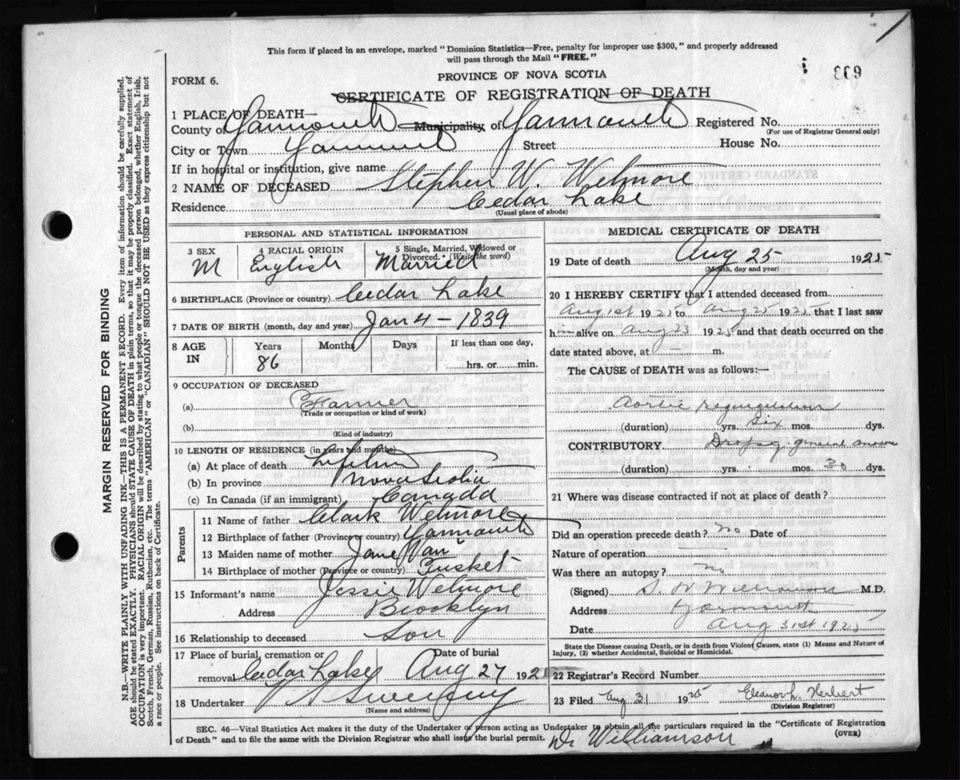 This form if placed in an envelope, marked "Dominion Statistics—Free, penalty for improper use $300," and properly addressed
will pass through the Mail "FREE."
FORM 6.
PROVINCE OF NOVA SCOTIA
CERTIFICATE OF REGISTRATION OF DEATH
1 PLACE OF DEATH—
County of Yarmouth Municipality of Yarmouth Registered No.
(For use of Registrar General only)
City or Town Yarmouth Street House No.
If in hospital or institution, give name
2 NAME OF DECEASED Stephen W. Welmore
Residence Cedar Lake
(Usual place of abode)
PERSONAL AND STATISTICAL INFORMATION
3 SEX M
4 RACIAL ORIGIN English
5 Single, Married, Widowed or Divorced. (Write the word) Married
6 BIRTHPLACE (Province or country) Cedar Lake
7 DATE OF BIRTH (month, day and year) Jan 4 - 1839
8 AGE IN Years 86 Months Days If less than one day, hrs. or min.
9 OCCUPATION OF DECEASED
(a) Farmer
(Trade or occupation or kind of work)
(b)
(Kind of industry)
10 LENGTH OF RESIDENCE (in years and months)
(a) At place of death
(b) In province Nova Scotia
(c) In Canada (if an immigrant) Canada
Parents
11 Name of father Clark Welmore
12 Birthplace of father (Province or country) Yarmouth
13 Maiden name of mother Jane
14 Birthplace of mother (Province or country) Tusket
15 Informant's name Jessie Welmore
Address Brooklyn
16 Relationship to deceased Son
17 Place of burial, cremation or removal Cedar Lake Date of burial Aug 27 1925
18 Undertaker V A Sweeny
(Name and address)
MEDICAL CERTIFICATE OF DEATH
19 Date of death Aug 25 1925
(Month, day and year)
20 I HEREBY CERTIFY that I attended deceased from
Aug 1st 1925 to Aug 25 1925 that I last saw
him alive on Aug 23 1925 and that death occurred on the
date stated above, at m.
The CAUSE of DEATH was as follows:—
Aortic regurgitation
(duration) yrs. Six mos. dys.
CONTRIBUTORY Dropsy general
(duration) yrs. mos. 30 dys.
21 Where was disease contracted if not at place of death?
Did an operation precede death? No Date of
Nature of operation
Was there an autopsy? No
(Signed) Williamson M.D.
Address Yarmouth
Date Aug 31st 1925
State the Disease causing Death, or in death from Violent Causes, state (1) Means and Nature of
Injury, (2) whether Accidental, Suicidal or Homicidal.
22 Registrar's Record Number
23 Filed Aug 31 1925 Eleanor L. Herbert
(Division Registrar)
SEC. 46—Vital Statistics Act makes it the duty of the Undertaker or person acting as Undertaker to obtain all the particulars required in the "Certificate of Registration
of Death" and to file the same with the Division Registrar who shall issue the burial permit. Dr Williamson
(OVER)
MARGIN RESERVED FOR BINDING
N.B.—WRITE PLAINLY WITH UNFADING INK—THIS IS A PERMANENT RECORD. Every item of information should be carefully supplied.
AGE should be stated EXACTLY. PHYSICIANS should STATE CAUSE OF DEATH in plain terms, so that it may be properly classified. Exact statement of
OCCUPATION is very important. RACIAL ORIGIN will be described by stating to what people or tongue the deceased person belonged, whether English, Irish,
Scotch, French, German, Russian, Ruthenian, etc. The terms "AMERICAN" or "CANADIAN" SHOULD NOT BE USED as they express citizenship but not
a race or people. See instructions on back of Certificate.